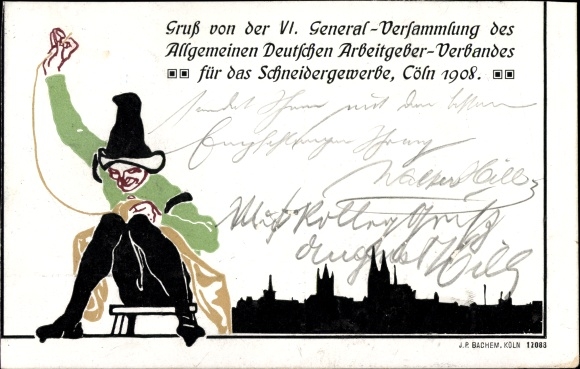 Gruß von der VI. General-Versammlung des
Allgemeinen Deutschen Arbeitgeber-Verbandes
für das Schneidergewerbe, Cöln 1908.
sendet Ihnen mit den besten
Empfehlungen
Walter Hill
Mit Kolleg Gruß
August Hill
J.P. BACHEM, KÖLN 17088